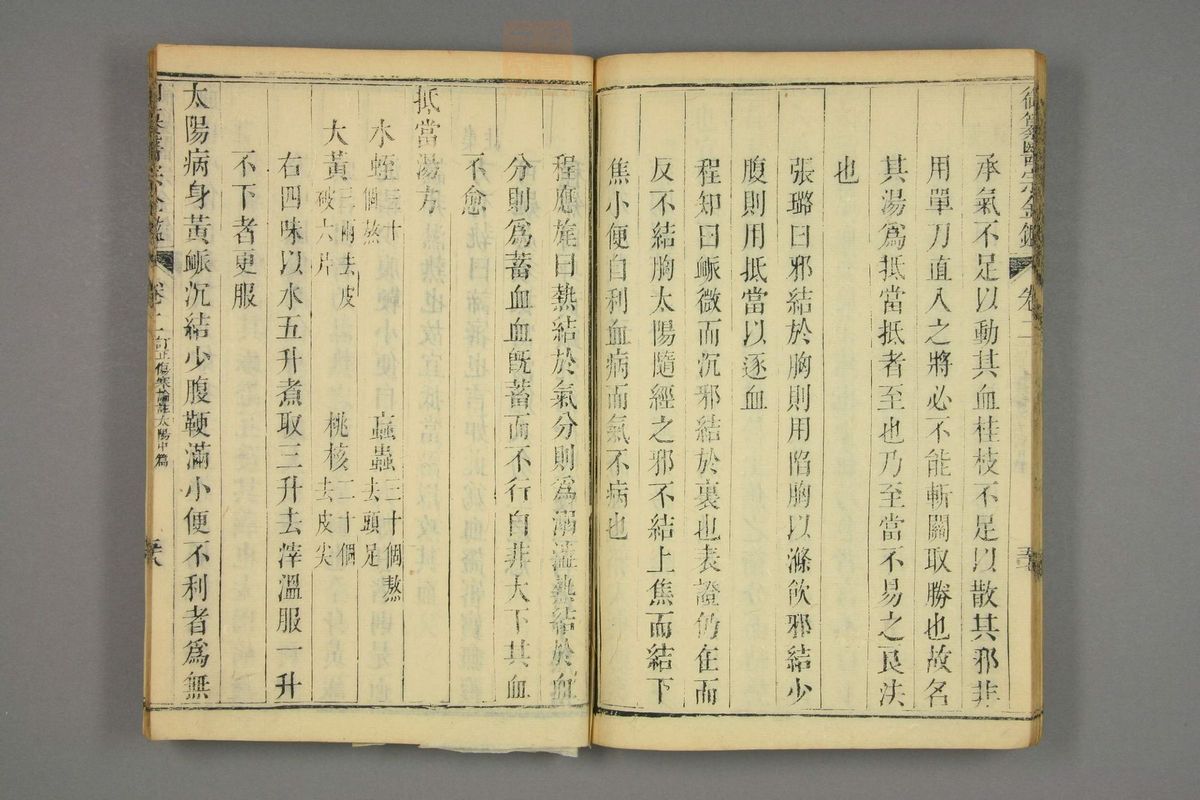 御纂醫宗金鑑 卷二
承氣不足以動其血桂枝不足以散其邪非
用單刀直入之將必不能斬關取勝也故名
其湯爲抵當抵者至也乃至當不易之良法
也
張璐曰邪結於胸則用陷胸以滌飮邪結少
腹則用抵當以逐血
程知曰脈微而沉邪結於裏也表證仍在而
反不結胸太陽隨經之邪不結上焦而結下
焦小便自利血病而氣不病也
程應旄曰熱結於氣分則爲溺澁熱結於血
分則爲蓄血血旣蓄而不行自非大下其血
不愈
抵當湯方
水蛭三十個熬 䖟蟲三十個熬去頭足
大黃三兩去皮破六片 桃核二十個去皮尖
右四味以水五升煮取三升去滓溫服一升
不下者更服
太陽病身黃脈沉結少腹鞕滿小便不利者爲無
卷二 訂正傷寒論註太陽中篇